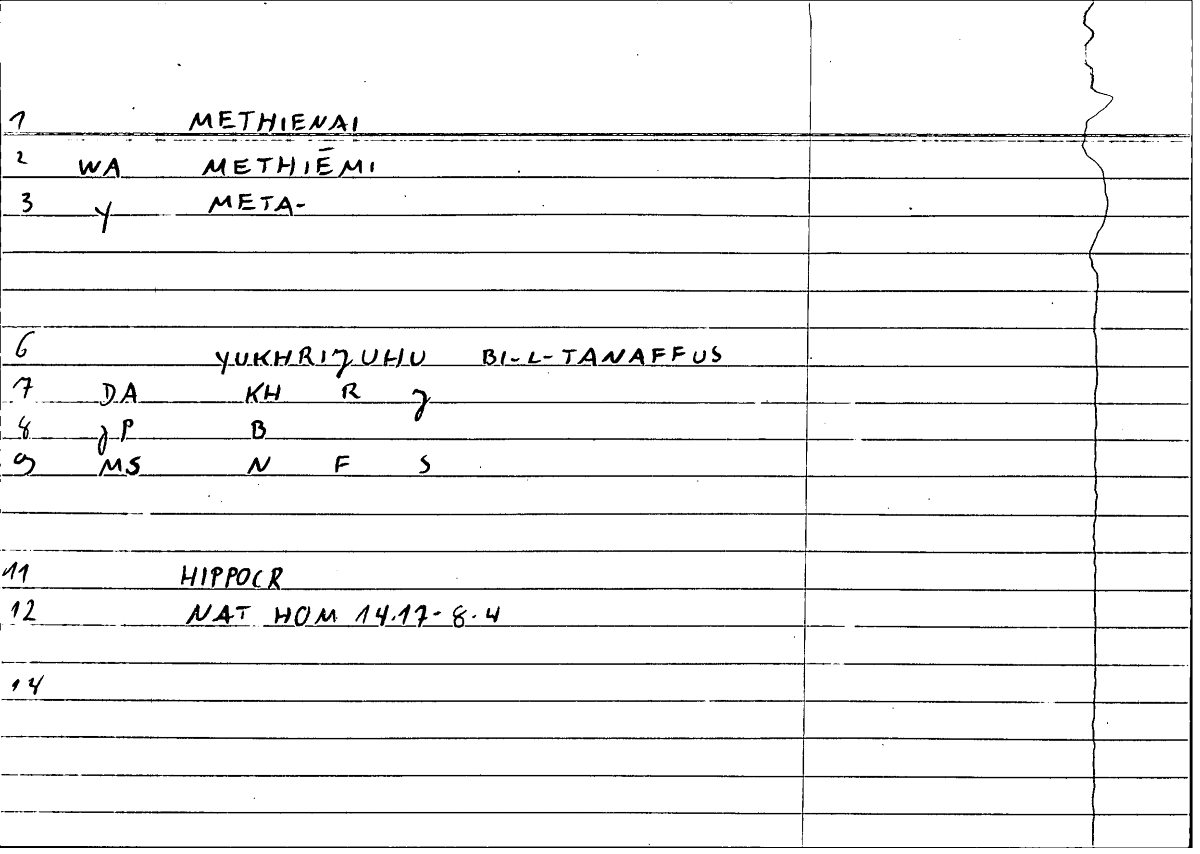 1 METHIENAI
2 WA METHIĒMI
3 Y META-
6 YUKHRIJUHU BI-L-TANAFFUS
7 DA KH R J
8 JP B
9 MS N F S
11 HIPPOCR
12 NAT HOM 14.17-8.4
14